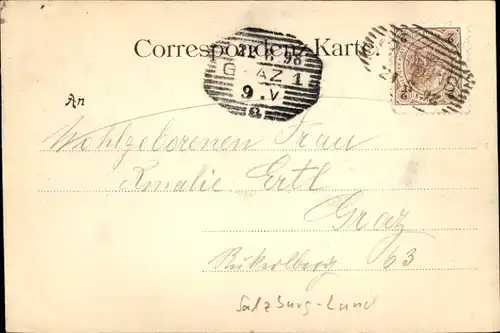 Correspondenz-Karte.
98
GRAZ 1
9.V
2
2
An
Wohlgeborenen Frau
Amalie Ertl
Graz
Rukerlberg 63
Salzburg-Land